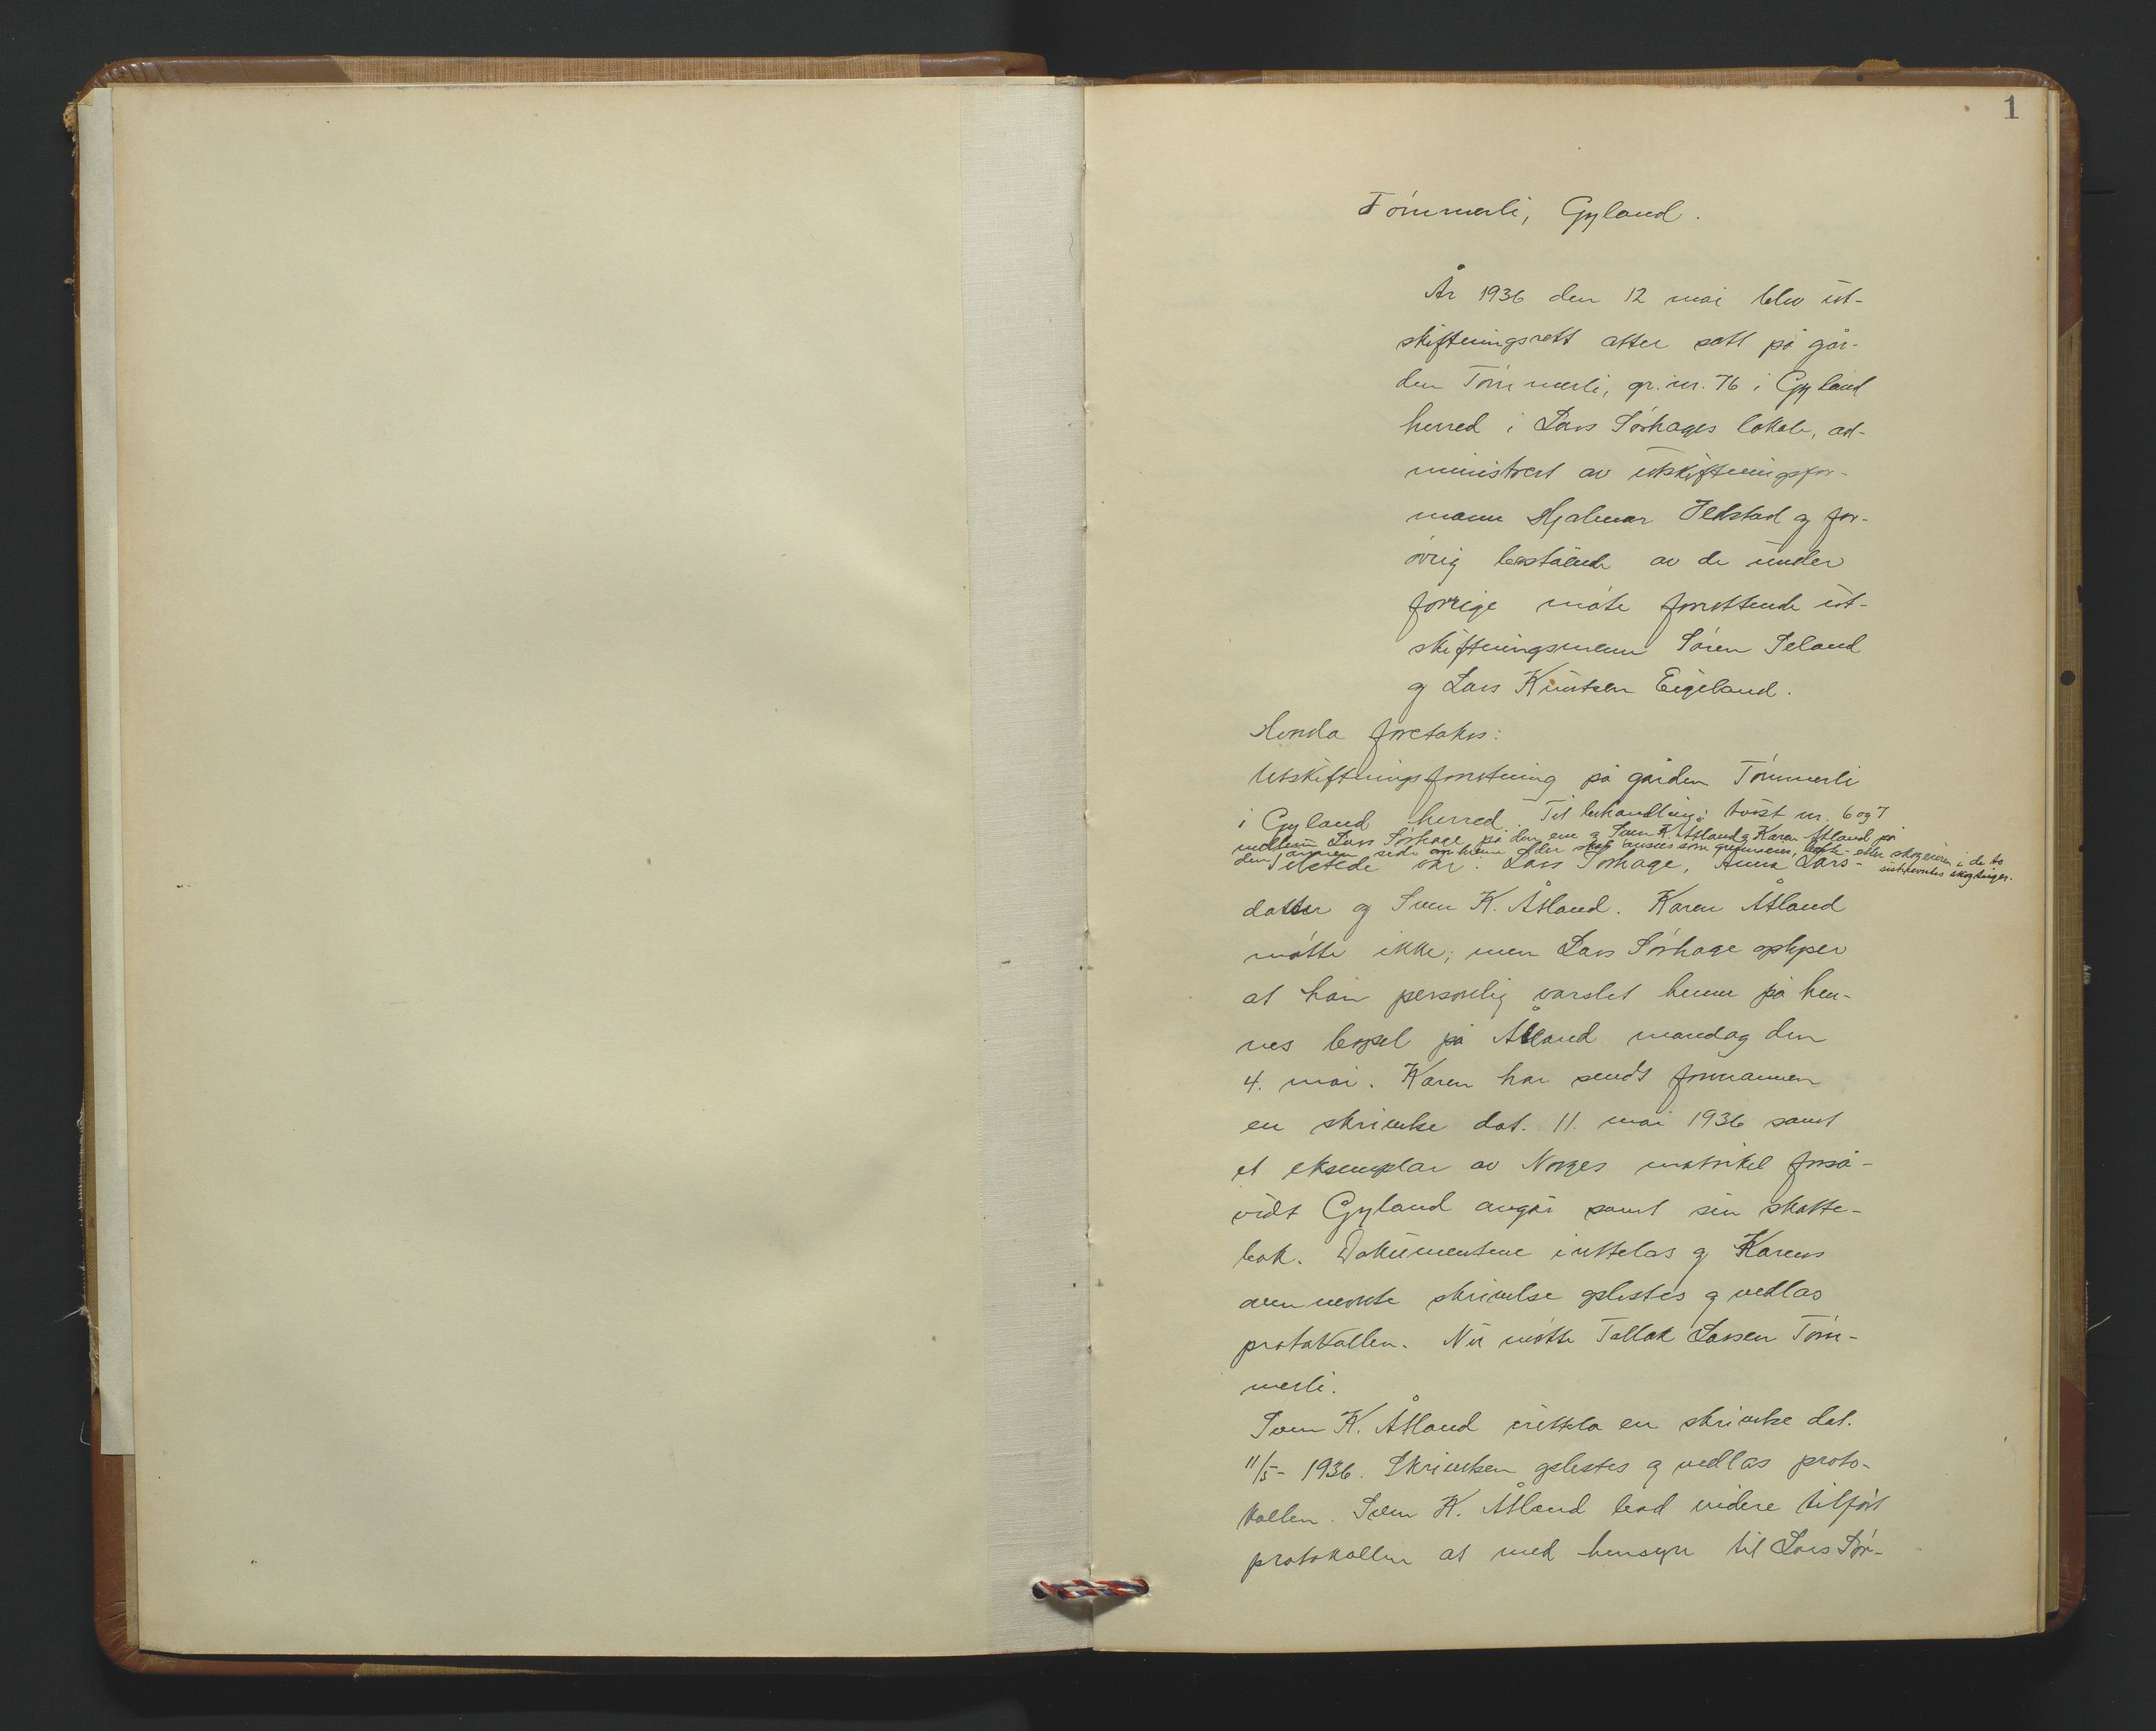 1
Tömmerli, Gyland.
År 1936 den 12 mai blev ut-
skiftningsrett atter satt på går-
den Tömmerli, gr. nr. 76 i Gyland
herred i Lars Sörhages lokale, ad-
ministrert av utskiftningsfor-
mann Hjalmar Jelstad og for-
övrig bestående av de under
forrige möte forrettende ut-
skiftningsmenn Sören Seland
og Lars Knutsen Eigeland.
Herda foretokes:
Utskiftningsforretning på gården Tömmerli
i Gyland herred. Til behandling: tvist nr. 6 og 7
mellem Lars Sörhage på den ene og Sven K. Åtland og Karen Åtland på
den annen side om hvem der skal ansees som grunneier, eller skogeier i de to
sistnevntes skogteiger.
Tilstede var: Lars Sörhage, Anna Lars-
datter og Sven K. Åtland. Karen Åtland
mötte ikke; men Lars Sörhage oplyser
at han personlig varslet henne på hen-
nes bopel på Åtland mandag den
4. mai. Karen har sendt formannen
en skrivelse dat. 11. mai 1936 samt
et eksemplar av Norges matrikel forså-
vidt Gyland angår samt sin skatte-
bok. Dokumentene fremlas og Karens
ovennevnte skrivelse oplestes og vedlas
protokollen. Nu mötte Tallak Larsen Töm-
merli.
Sven K. Åtland fremla en skrivelse dat.
11/5- 1936. Skrivelsen oplestes og vedlas proto-
kollen. Sven K. Åtland bad videre tilfört
protokollen at med hensyn til Lars Sör-